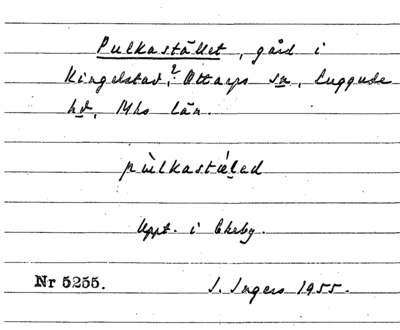 Pulkastället, gård i
Kingelstad,? Ottarps sn, Luggude
hd, Mhs län.
pùlkastæ̀led
Uppt. i Ekeby.
Nr 5255. I. Ingers 1955.